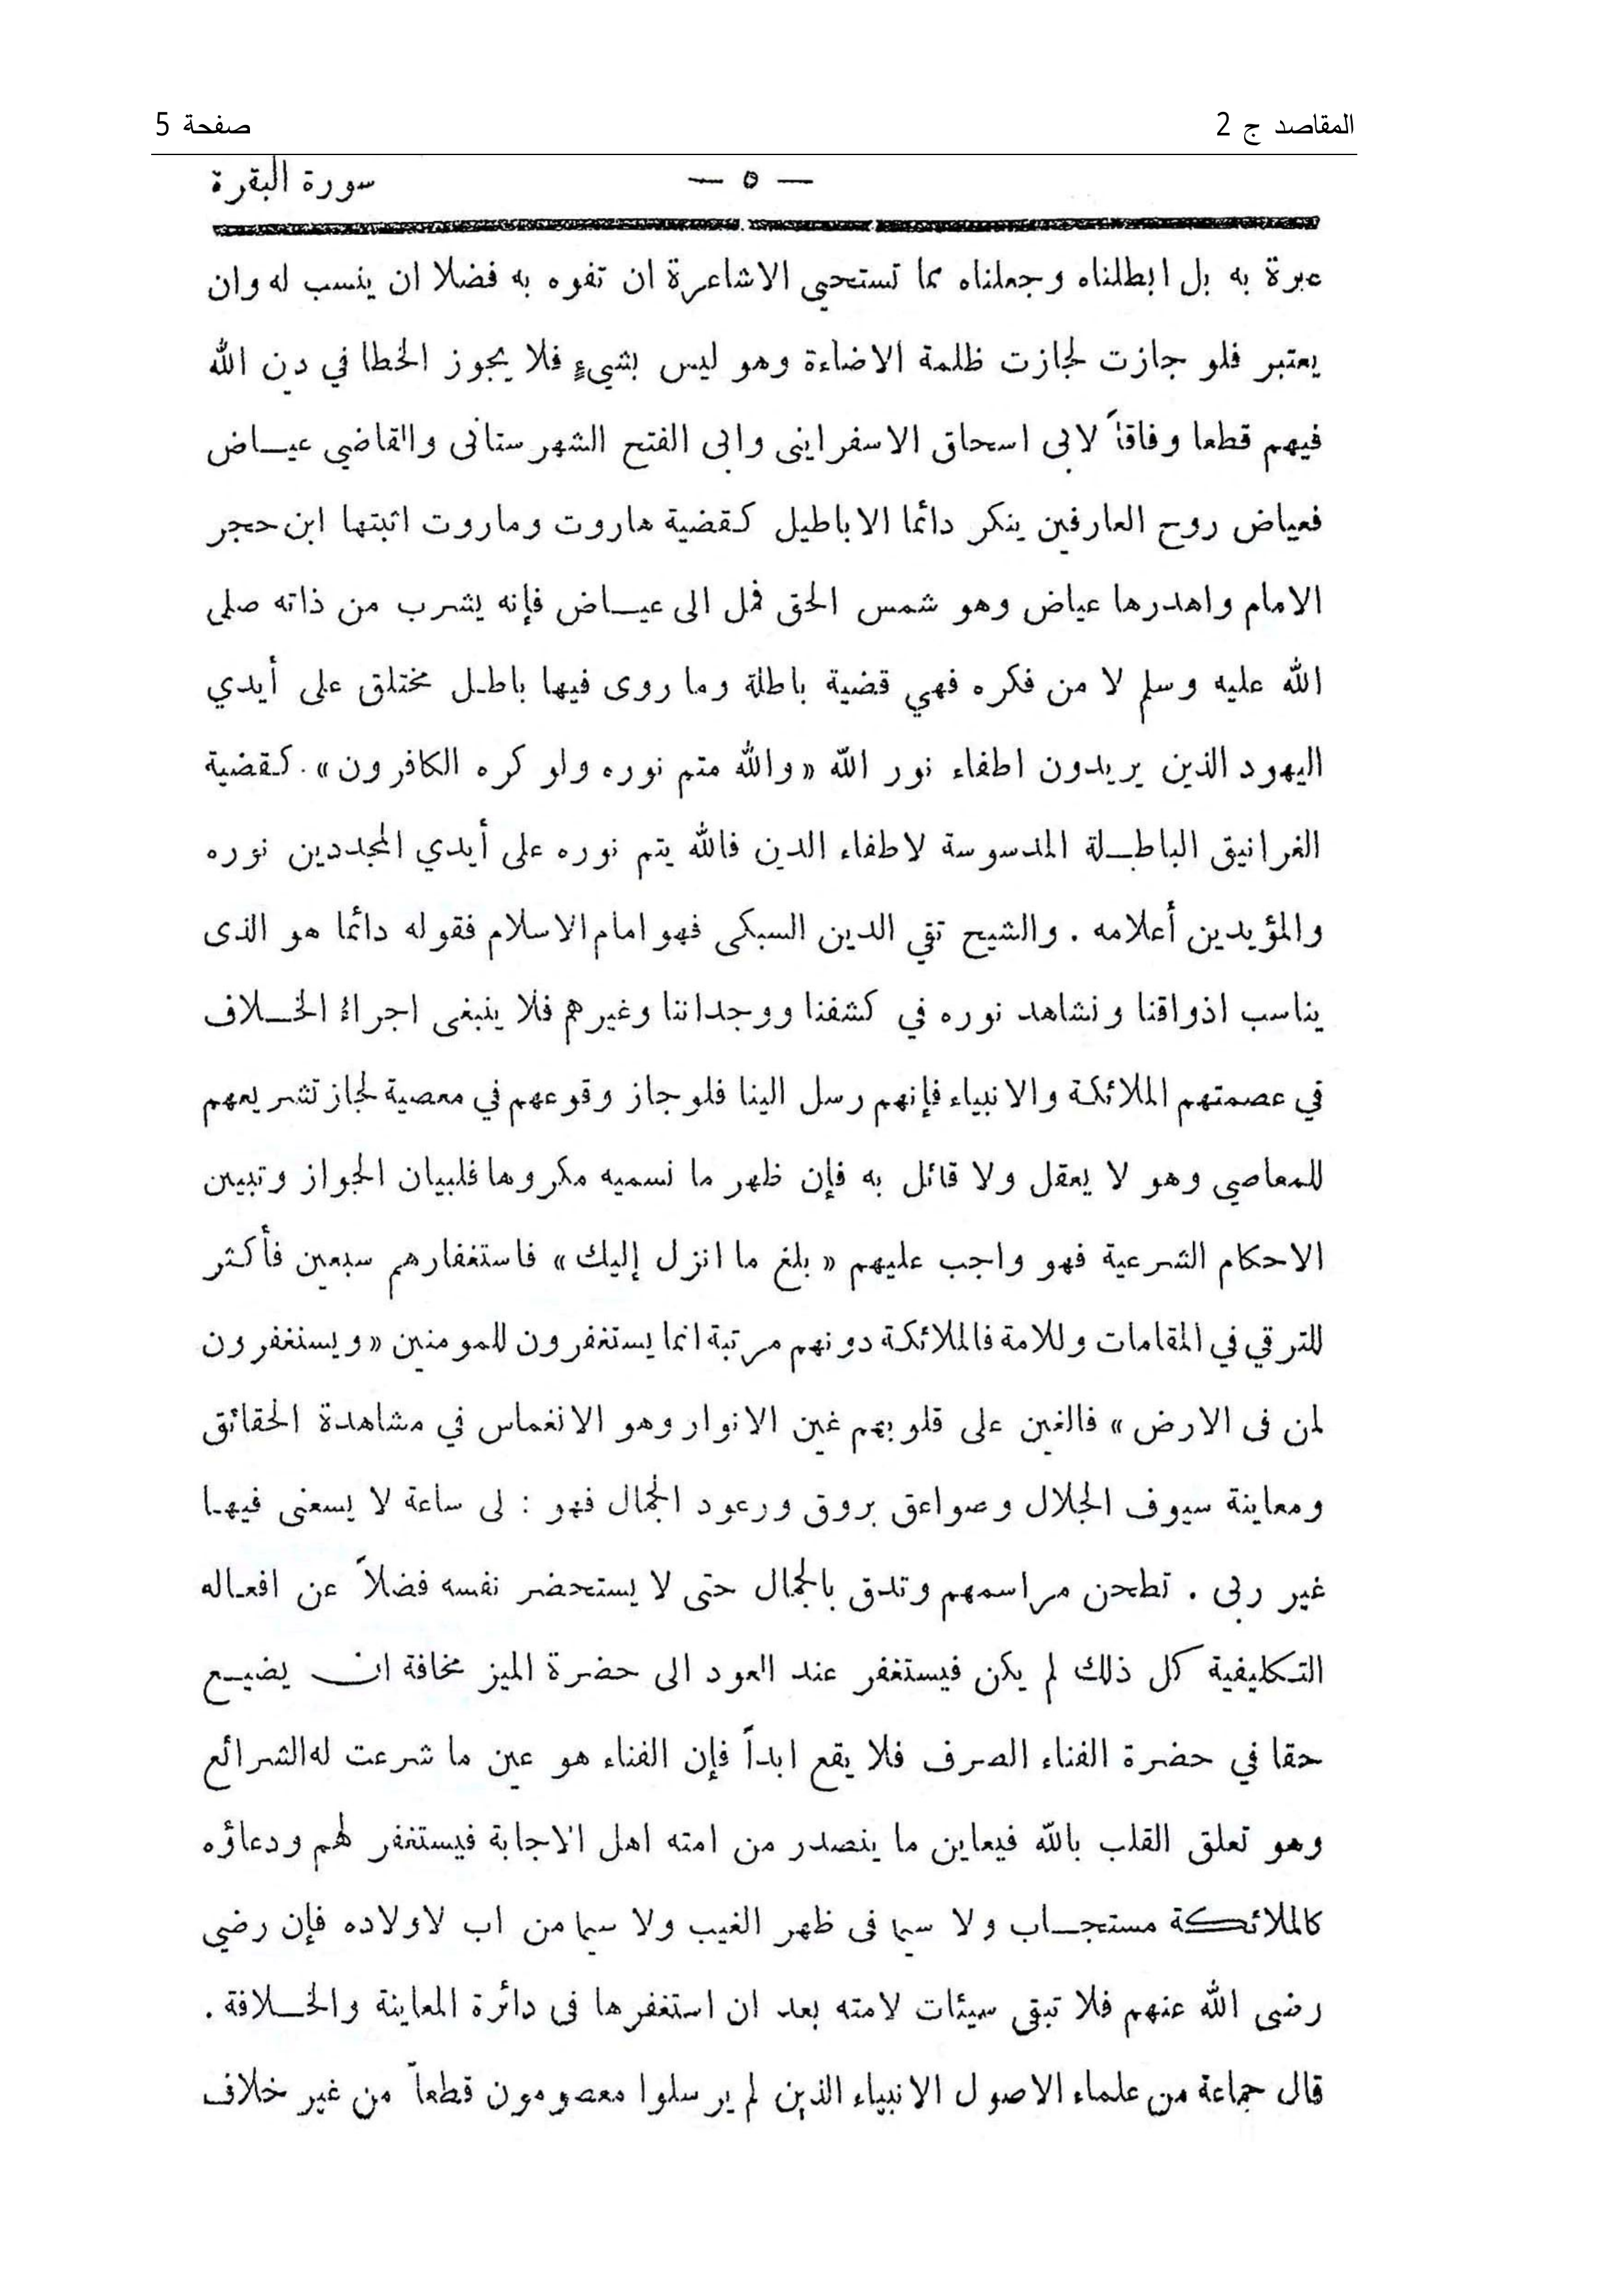 المقاصد ج 2
صفحة 5
— ٥ —
سورة البقرة
عبرة به بل ابطلناه وجعلناه مما تستحيي الاشاعرة ان تفوه به فضلا ان ينسب له وان
يعتبر فلو جازت لجازت ظلمة الاضاءة وهو ليس بشيءٍ فلا يجوز الخطا في دين الله
فيهم قطعا وفاقاً لابى اسحاق الاسفراينى وابى الفتح الشهرستانى والقاضي عيــاض
فعياض روح العارفين ينكر دائما الاباطيل كقضية هاروت وماروت اثبتها ابن حجر
الامام واهدرها عياض وهو شمس الحق فمل الى عيــاض فإنه يشرب من ذاته صلى
الله عليه وسلم لا من فكره فهي قضية باطلة وما روى فيها باطل مختلق على أيدي
اليهود الذين يريدون اطفاء نور الله «والله متم نوره ولو كره الكافرون». كقضية
الغرانيق الباطــلة المدسوسة لاطفاء الدين فالله يتم نوره على أيدي المجددين نوره
والمؤيدين أعلامه . والشيح تقي الدين السبكى فهو امام الاسلام فقوله دائما هو الذى
يناسب اذواقنا ونشاهد نوره في كشفنا ووجداننا وغيرهم فلا ينبغى اجراء الخــلاف
في عصمتهم الملائكة والانبياء فإنهم رسل الينا فلو جاز وقوعهم في معصية لجاز تشريعهم
للمعاصي وهو لا يعقل ولا قائل به فإن ظهر ما نسميه مكروها فلبيان الجواز وتبيين
الاحكام الشرعية فهو واجب عليهم « بلغ ما انزل إليك » فاستغفارهم سبعين فأكثر
للترقي في المقامات وللامة فالملائكة دونهم مرتبة انما يستغفرون للمومنين «ويستغفرون
لمن فى الارض » فالغين على قلوبهم غين الانوار وهو الانغماس في مشاهدة الحقائق
ومعاينة سيوف الجلال وصواعق بروق ورعود الجمال فهو : لى ساعة لا يسعنى فيها
غير ربى . تطحن مراسمهم وتدق بالجمال حتى لا يستحضر نفسه فضلاً عن افعاله
التكليفية كل ذلك لم يكن فيستغفر عند العود الى حضرة الميز مخافة ان يضيــع
حقا في حضرة الفناء الصرف فلا يقع ابداً فإن الفناء هو عين ما شرعت له الشرائع
وهو تعلق القلب بالله فيعاين ما ينصدر من امته اهل الاجابة فيستغفر لهم ودعاؤه
كالملائكة مستجــاب ولا سيما فى ظهر الغيب ولا سيما من اب لاولاده فإن رضي
رضى الله عنهم فلا تبقى سيئات لامته بعد ان استغفرها فى دائرة المعاينة والخــلافة .
قال جماعة من علماء الاصول الانبياء الذين لم يرسلوا معصومون قطعاً من غير خلاف